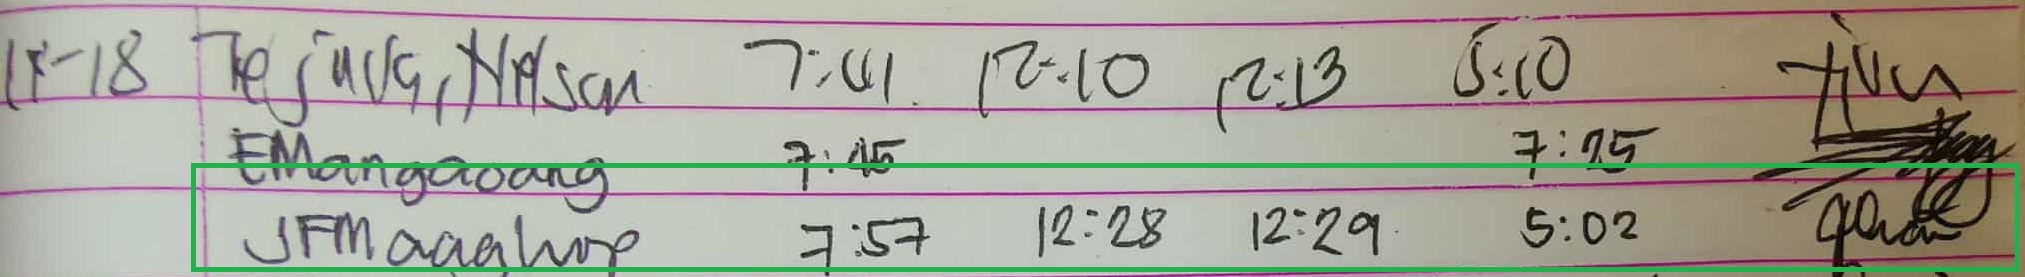 17-18 Tejuco, Nelson 7:41 12:10 12:13 5:10
EMangaoang 7:45 7:25
JFMaaghop 7:57 12:28 12:29 5:02